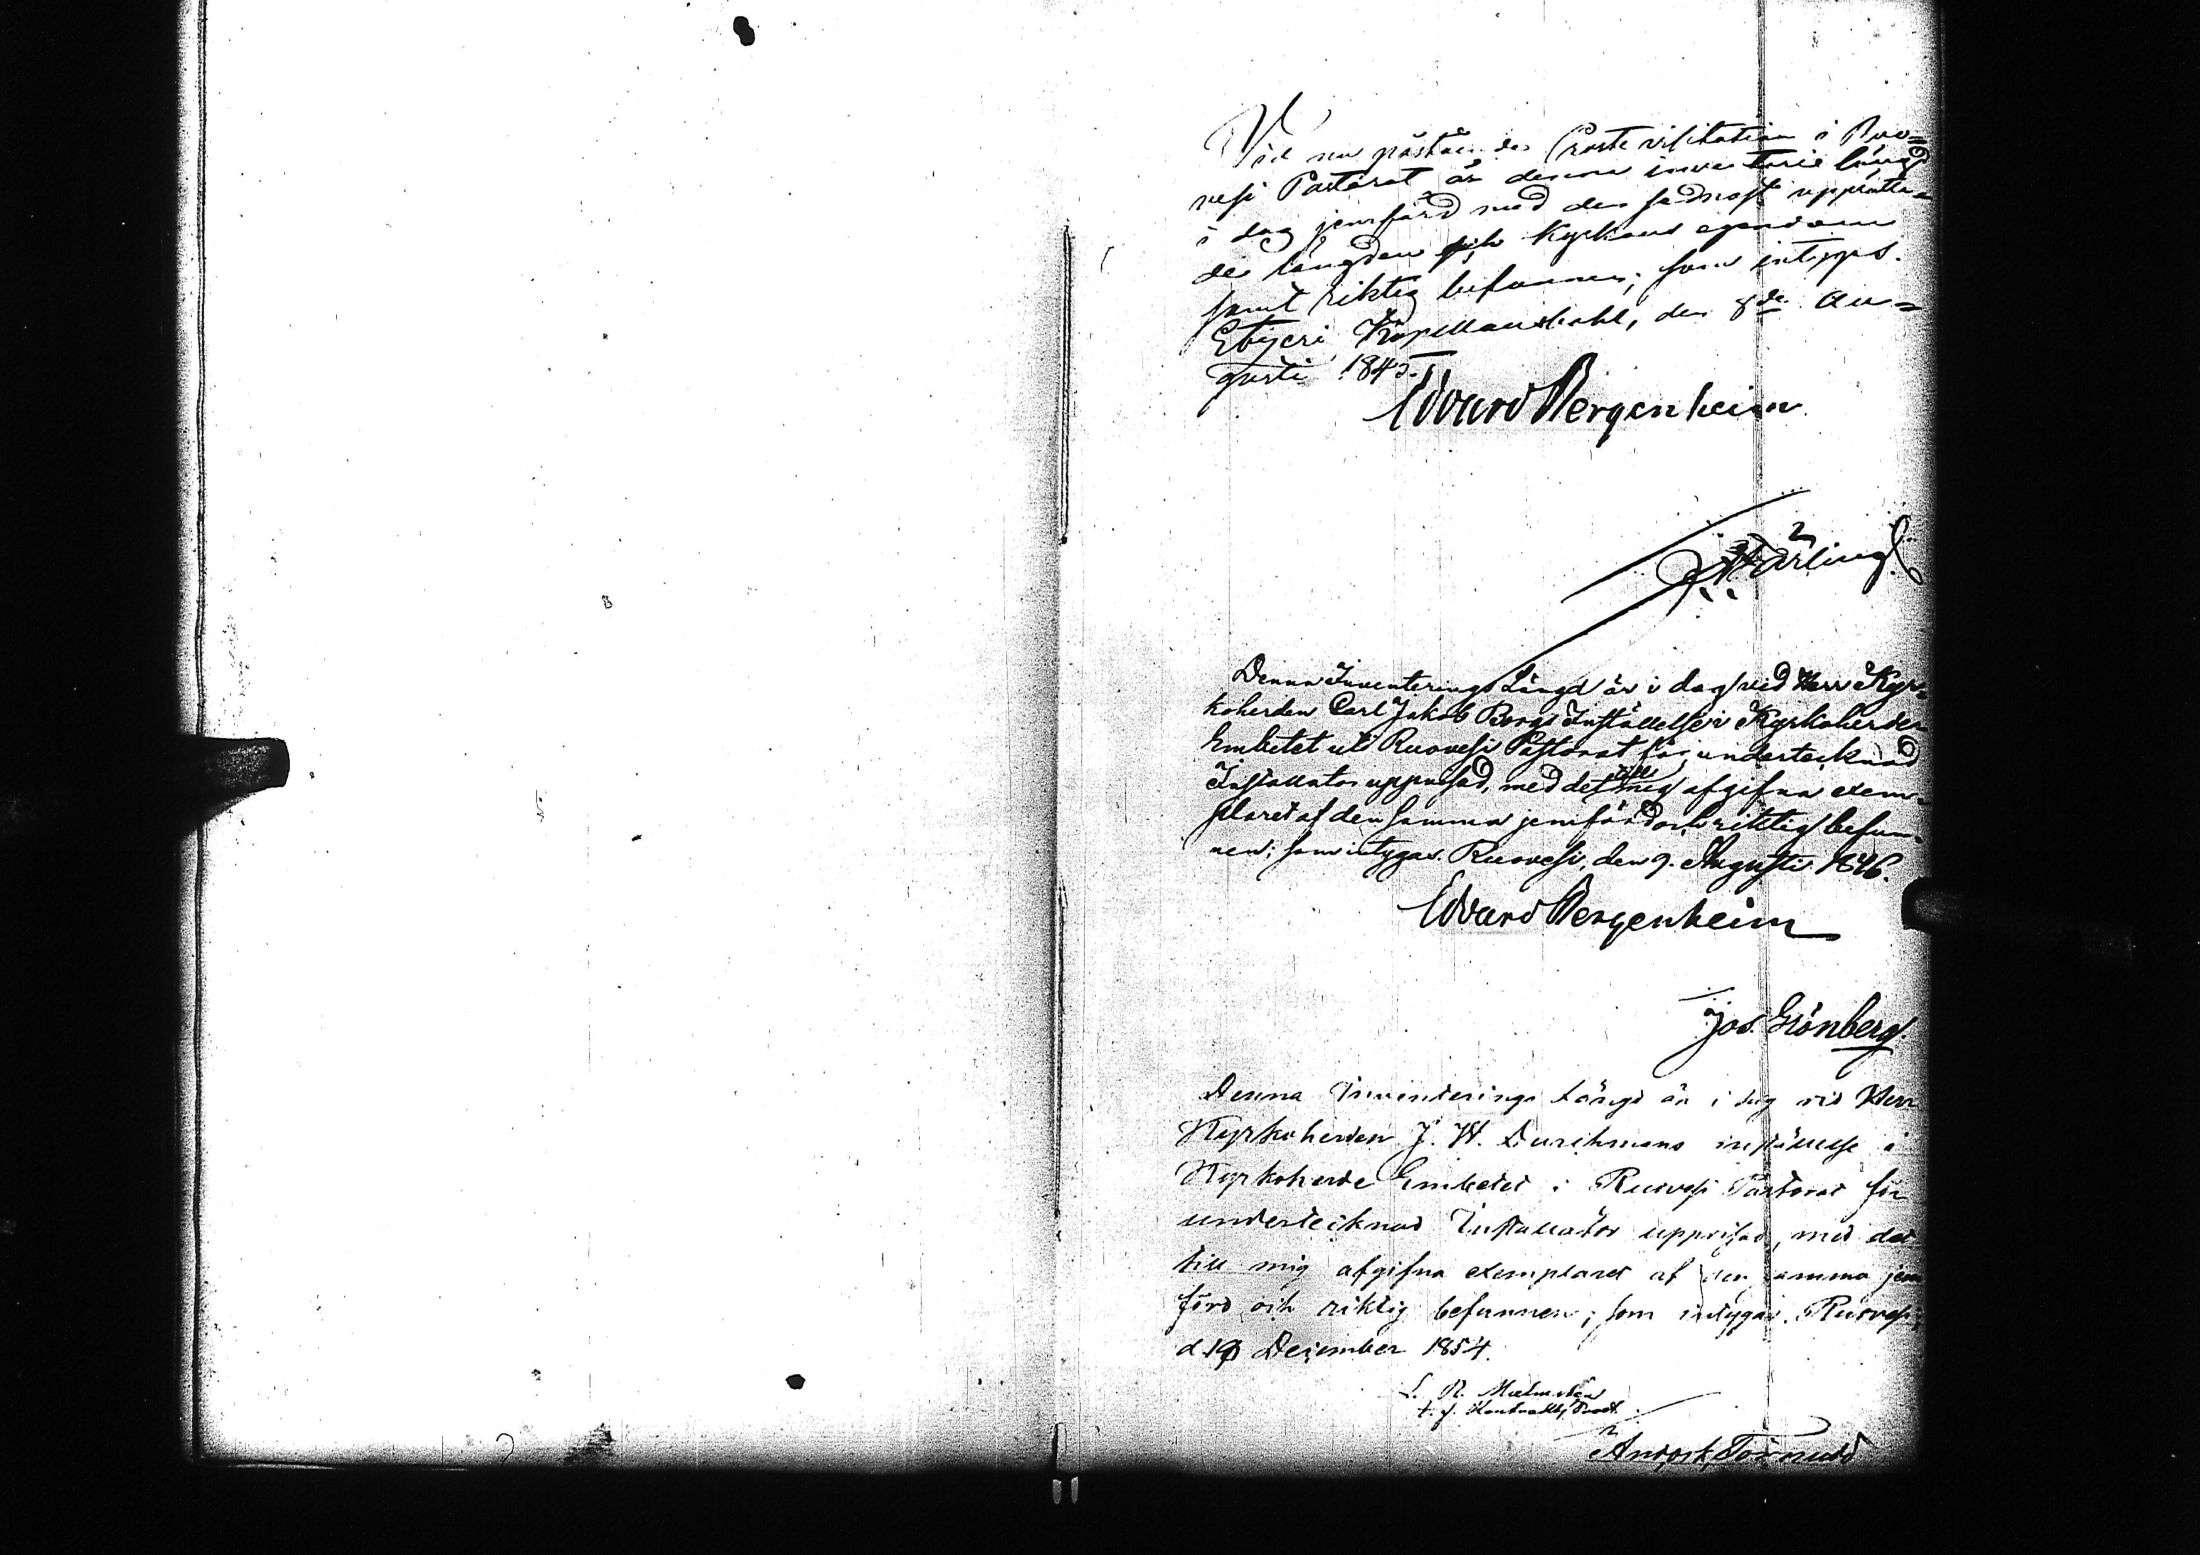 Vid nu påstående Prostevisitation i Ruo=
vesi Pastorat är denna inventarie längd
i dag jemförd med den sednast upprätta=
de längden öfver Kyrkans egendom
samt riktig befunnen; som intygas.
Etseri Kapellansbohl, den 8de Au=
gusti 1843.
Edvard Bergenheim
Denna Inventerings Längd är i dag vid Herr Kyr=
koherden Carl Jakob Borgs Inställelse i Kyrkoherde
Embetet uti Ruovesi Pastorat för undertecknad
Installator uppvisad, med det till mig afgifna exem=
plaret af den samma jemförd och riktig befun=
nen; som intygas. Ruovesi, den 9. Augusti 1846.
Edvard Bergenheim
Jos. Grönberg.
Denna Inventerings Längd är i dag vid Herr
Kyrkoherden J. W. Durchmans inställelse i
Kyrkoherde Embetet i Ruovesi Pastorat för
undertecknad Installator uppvisad, med det
till mig afgifna exemplaret af den samma jem
förd och riktig befunnen; som intygas. Ruovesi,
d 10 December 1854.
Malmstén
t. f. Kontrakts Prost.
Törnudd